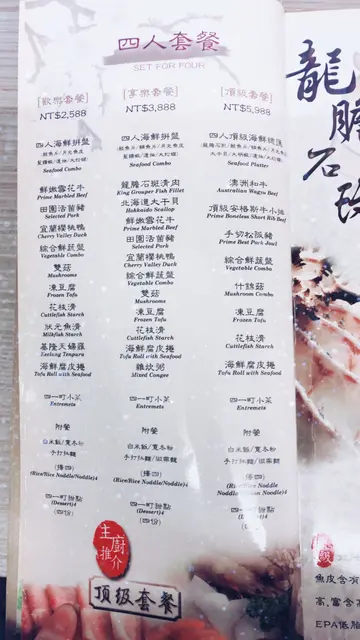 四人套餐
SET FOR FOUR
[歡樂套餐]
NT$2,588
四人海鮮拼盤
Seafood Combo
鮮嫩雪花牛
Prime Marbled Beef
田園活菌豬
Selected Pork
宜蘭櫻桃鴨
Cherry Valley Duck
綜合鮮蔬盤
Vegetable Combo
雙菇
Mushrooms
凍豆腐
Frozen Tofu
花枝滑
Cuttlefish Starch
狀元魚滑
Milkfish Starch
基隆天婦羅
Keelung Tenpura
海鮮腐皮捲
Tofu Roll with Seafood
四一町小菜
Entremets
附餐
白米飯/寬冬粉
手打拉麵
(擇四)
(Rice/Rice Noddle/Noddle)4
四一町甜點
(Dessert)4
(四份)
[享樂套餐]
NT$3,888
四人海鮮拼盤
Seafood Combo
龍膽石斑清肉
King Grouper Fish Fillet
北海道大干貝
Hokkaido Scallop
鮮嫩雪花牛
Prime Marbled Beef
田園活菌豬
Selected Pork
宜蘭櫻桃鴨
Cherry Valley Duck
綜合鮮蔬盤
Vegetable Combo
雙菇
Mushrooms
凍豆腐
Frozen Tofu
花枝滑
Cuttlefish Starch
海鮮腐皮捲
Tofu Roll with Seafood
雜炊粥
Mixed Congee
四一町小菜
Entremets
附餐
白米飯/寬冬粉
手打拉麵
(擇四)
(Rice/Rice Noddle/Noddle)4
四一町甜點
(Dessert)4
(四份)
[頂級套餐]
NT$5,988
四人頂級海鮮
Seafood Platter
澳洲和牛
Australian Wagyu Beef
頂級安格斯牛小排
Prime Boneless Short Rib Beef
手切松阪豬
Prime Best Pork Jowl
綜合鮮蔬盤
Vegetable Combo
什錦菇
Mushroom Combo
凍豆腐
Frozen Tofu
花枝滑
Cuttlefish Starch
海鮮腐皮捲
Tofu Roll with Seafood
四一町小菜
Entremets
附餐
白米飯/寬冬粉
(擇四)
四一町甜點
(Dessert)4
(四份)
主廚推介
頂級套餐
龍膽石
魚皮含有
高,富含
EPA低脂